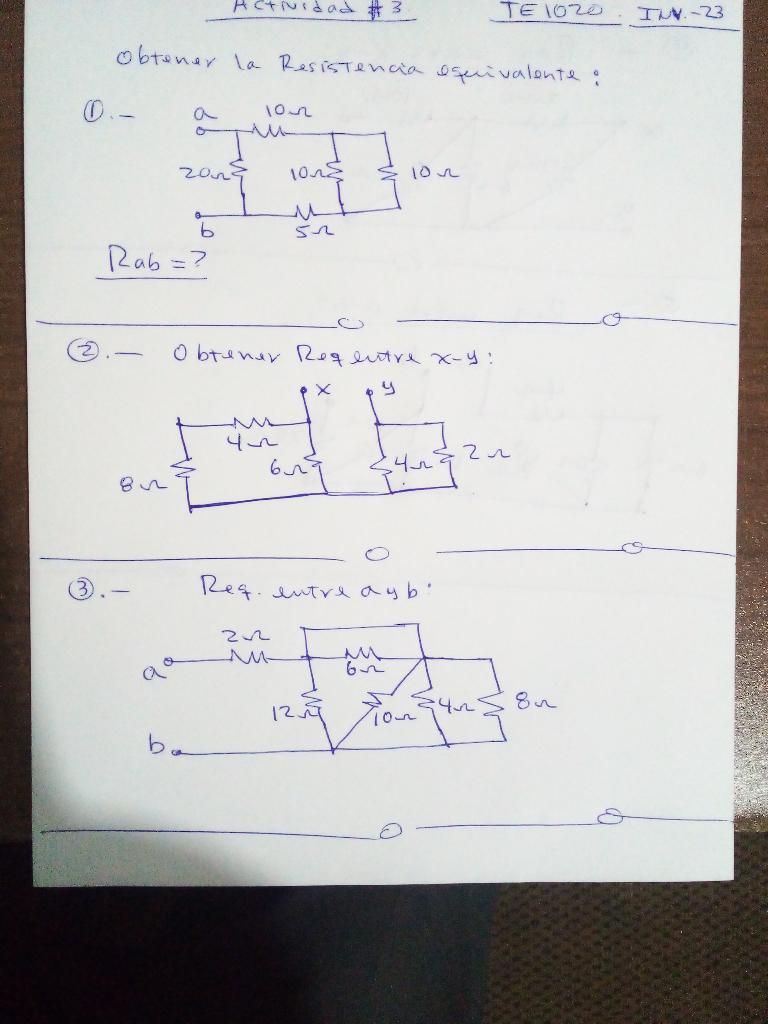 Actividad #3 TE1020. INV.-23
Obtener la Resistencia equivalente:
①.-
a 10Ω
20Ω 10Ω 10Ω
b 5Ω
Rab = ?
②.- Obtener Req entre x-y:
x y
4Ω
8Ω 6Ω 4Ω 2Ω
③.- Req. entre a y b:
2Ω
a 6Ω
12Ω 10Ω 4Ω 8Ω
b